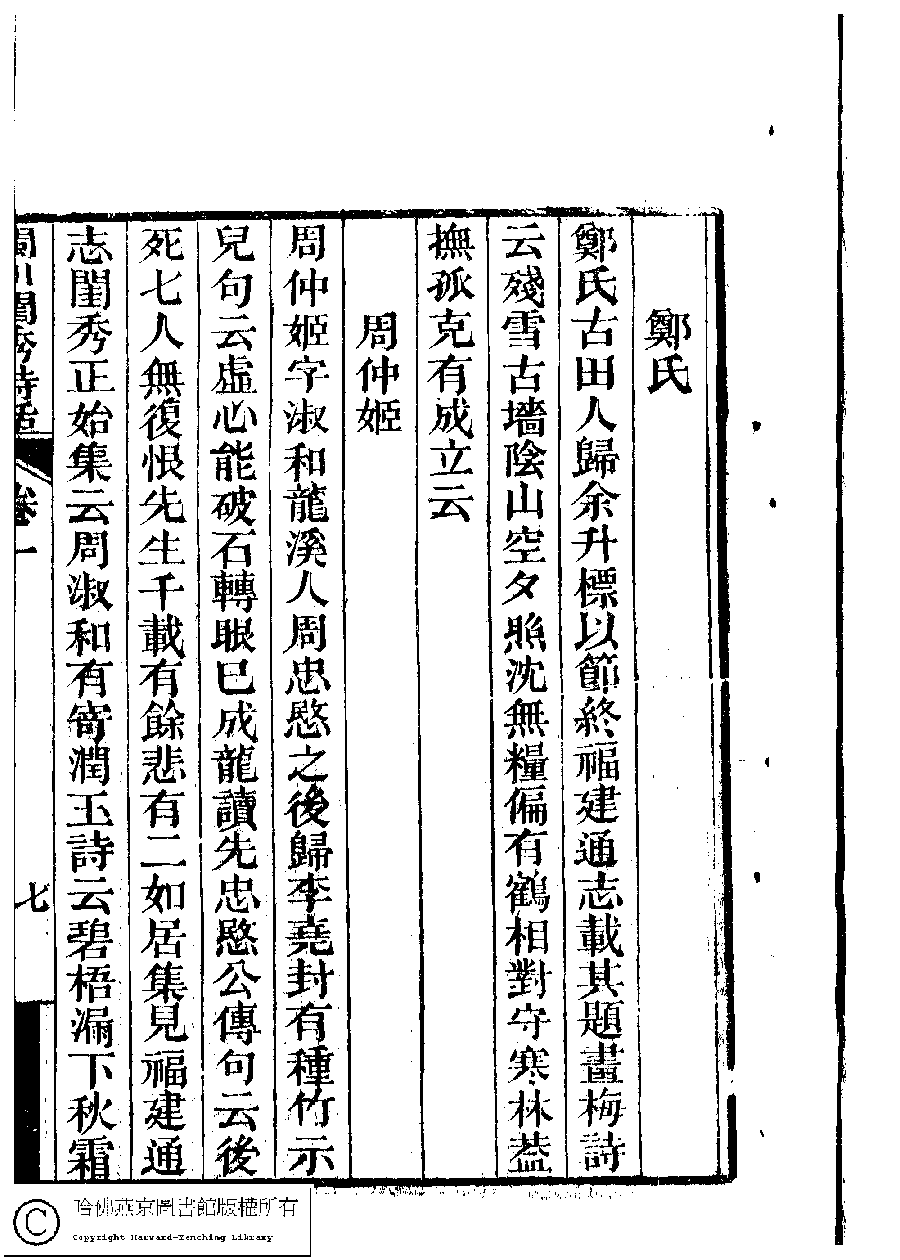 鄭氏
鄭氏古田人歸余升標以節終福建通志載其題畫梅詩
云殘雪古墻陰山空夕照沈無糧偏有鶴相對守寒林葢
撫孤克有成立云
周仲姬
周仲姬字淑和龍溪人周忠愍之後歸李堯封有種竹示
兒句云虛心能破石轉眼巳成龍讀先忠愍公傳句云後
死七人無復恨先生千載有餘悲有二如居集見福建通
志閨秀正始集云周淑和有寄潤玉詩云碧梧漏下秋霜
閩川閨秀詩話 卷一 七
哈佛燕京圖書館版權所有
Copyright Harvard-Yenching Library